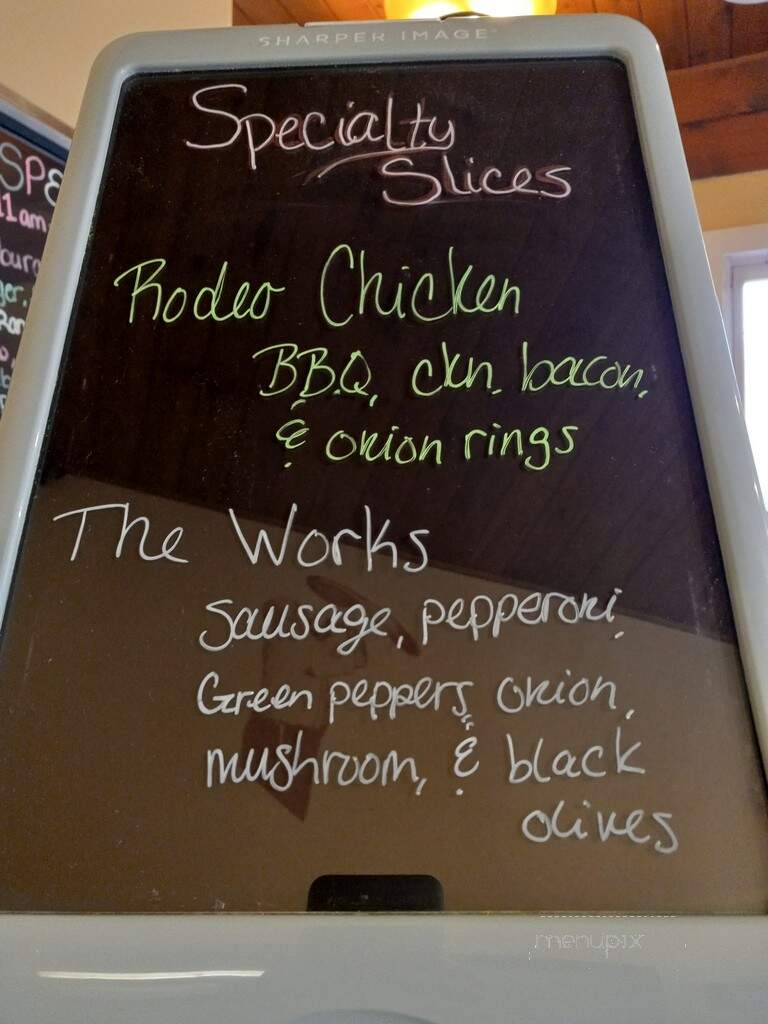 SHARPER IMAGE
Specialty
Slices
Rodeo Chicken
BBQ, ckn, bacon,
& onion rings
The Works
Sausage, pepperoni,
Green peppers, onion,
mushroom, & black
olives
SPE
11am
burg
menupix